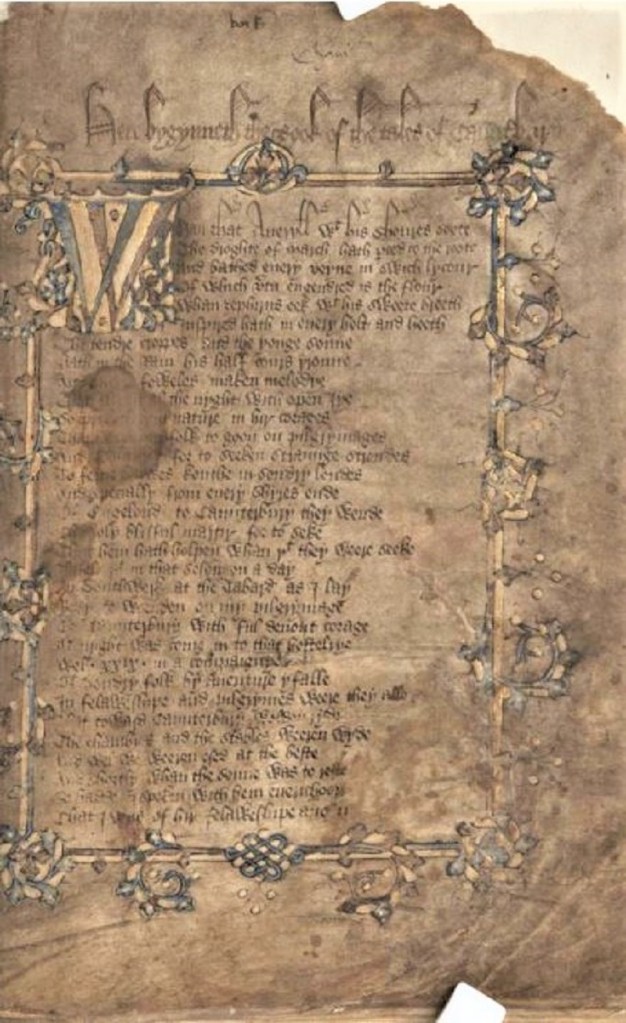 Here bygynneth the Book of the tales of Caunterbury
Whan that Aueryll wt his shoures soote
The droghte of March hath perced to the roote
And bathed euery veyne in swich lycour
Of which vtu engendred is the flour
Whan zephirus eek wt his sweete breeth
Inspired hath in euery holt and heeth
The tendre croppes and the yonge sonne
Hath in the Ram his half cours yronne
And foweles maken melodye
the nyght with open Iye
nature in hir corages
folk to goon on pilgrymages
And for to seeken straunge strondes
To ferne kouthe in sondry londes
And specially from euery shyres ende
Of Engelond to Caunterbury they wende
The holy blisful martir for to seke
That hem hath holpen whan þt they weere seeke
Bifel þt in that seson on a day
In Southwerk at the Tabard as I lay
Redy to weenden on my pilgrymage
To Caunterbury with ful deuout corage
At nyght was come in to that hostelrye
Wel xxix in a compaignye
Of sondry folk by auenture yfalle
In felaweshipe and pilgrymes weere they alle
That toward Caunterbury wolden ryde
The chambres and the stables weeren wyde
And wel we weeren esed at the beste
And shortly whan the sonne was to reste
So hadde I spoken with hem euerichoon
That I was of hir felaweshipe